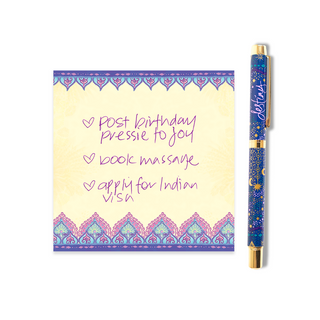 post birthday
pressie to joy
book massage
apply for Indian
visa
destiny